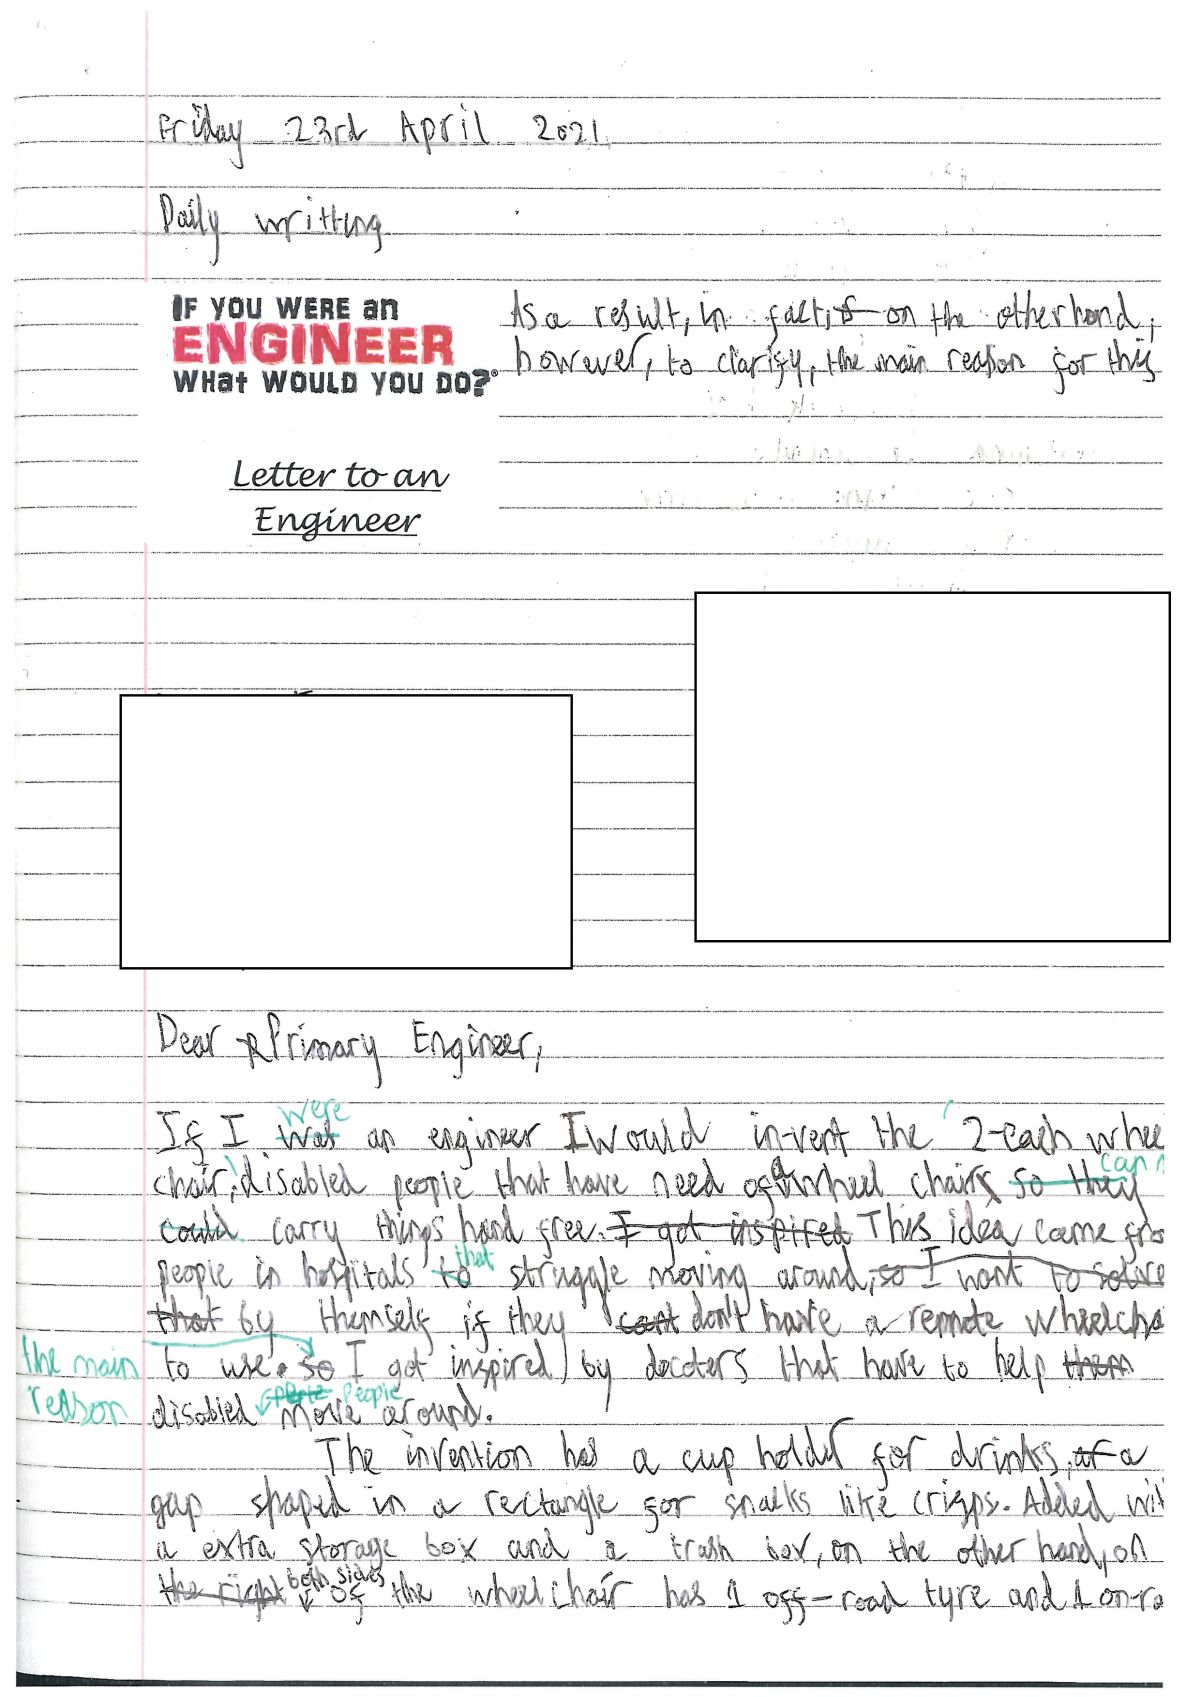 Friday 23rd April 2021
Daily writting
IF YOU WERE an
ENGINEER
WHat WOULD YOU DO?®
As a result, in fact, if on the otherhand,
however, to clarify, the main reason for this
Letter to an
Engineer
Dear p Primary Engineer,
were
If I was an engineer I would in-vent the '2-each whee
chair,' disabled people that have need of a wheel chairs so they can
could carry things hand free. I got inspired This idea came fro
people in hospitals to that struggle moving around, so I want to solve
that by themself if they cant don't have a remote wheelcha
the main
reason
to use. so I got inspired by docters that have to help them
disabled people move around.
The invention has a cup holder for drinks, a
gap shaped in a rectangle for snaks like crisps. Added wit
a extra storage box and a trash box, on the other hand, on
the right both sides of the wheelchair has 1 off-road tyre and 1 on-ro